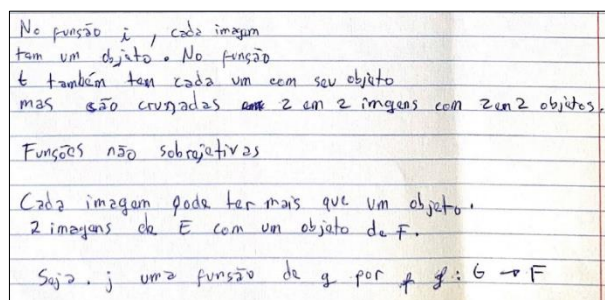 No funsão i, cada imagem
tam um objato. No funsão
t também tem cada um com seu objeto
mas são cruzadas 2 em 2 imgens com 2 em 2 objetos.
Funsões não sobrejetivas
Cada imagem pode ter mais que um objeto.
2 imagens de E com um objeto de F.
Seja. j uma funsão de g por g: G → F